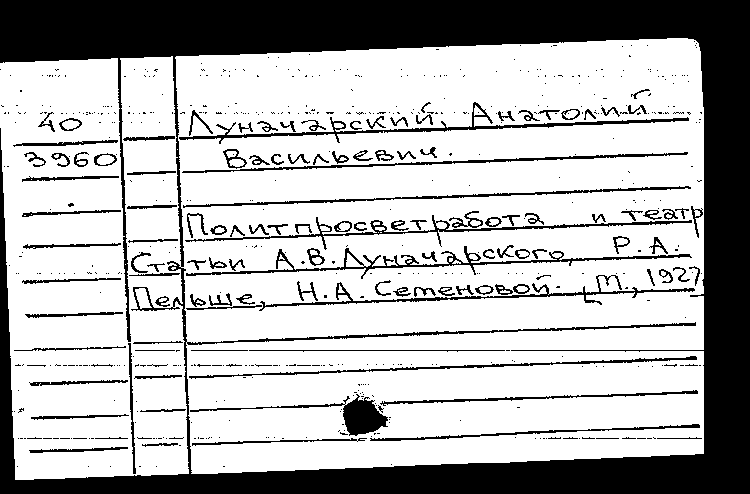 40 Луначарский, Анатолий
3960 Васильевич.
Политпросветработа и театр
Статьи А.В.Луначарского, Р.А.
Пельше, Н.А.Семеновой. [М., 1927